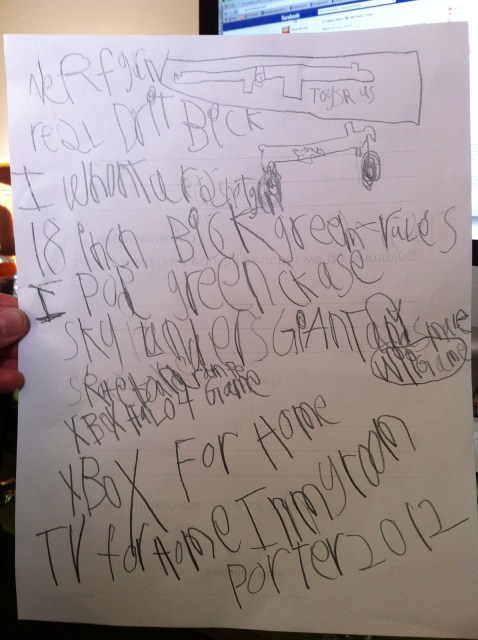 NeRfgun
TOYSR US
real Dirt Bick
I whant a
18 inch Bick green-rales
I pod green ckase
SkylandeRs GIANT and
Wii Game
XBOX HALO 4 Game
XBOX FoR Home
TV for Home In my room
porter 2012
facebook